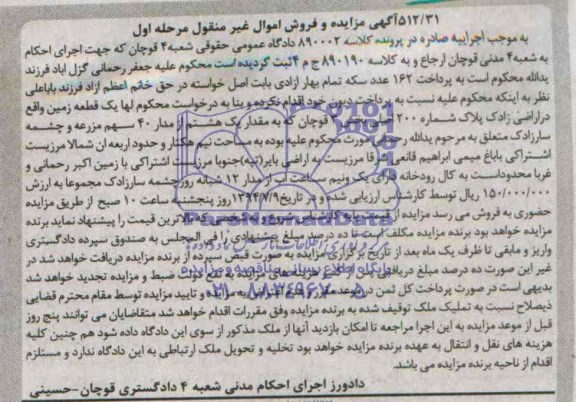 ۵۱۲/۳۱آگهی مزایده و فروش اموال غیر منقول مرحله اول
به موجب اجراییه صادره در پرونده کلاسه ۸۹۰۰۰۲ دادگاه عمومی حقوقی شعبه۴ قوچان که جهت اجرای احکام
به شعبه۴ مدنی قوچان ارجاع و به کلاسه ۸۹۰۱۹۰ ج م ۴ثبت گردیده است محکوم علیه جعفر رحمانی گزل اباد فرزند
یدالله محکوم است به پرداخت ۱۶۲ عدد سکه تمام بهار ازادی بابت اصل خواسته در حق خانم اعظم ازاد فرزند باباعلی
نظر به اینکه محکوم علیه نسبت به پرداخت دیون خود اقدام نکرده و بنا به درخواست محکوم لها یک قطعه زمین واقع
دراراضی زادک پلاک شماره ۲۰۰ قوچان که به مقدار یک هشتم از مدار ۴۰ سهم مزرعه و چشمه
سارزادک متعلق به مرحوم یدالله رحمانی مورث محکوم علیه بوده به مساحت نیم هکتار و حدود اربعه ان شمالا مرزیست
اشتراکی باباغ میمی ابراهیم قانعی شرقا مرزیست به اراضی بایر(تپه)جنوبا مرزیست اشتراکی با زمین اکبر رحمانی و
غربا محدوداست به کال رودخانه دارای یک ونیم ساعت آب از مدار ۱۲ شبانه روزچشمه سارزادک مجموعا به ارزش
۱۵۰/۰۰۰/۰۰۰ ریال توسط کارشناس ارزیابی شده و در تاریخ۱۳۹۴/۷/۹روز پنجشنبه ساعت ۱۰ صبح از طریق مزایده
حضوری به فروش می رسد مزایده از قیمت پایه کارشناس شروع و به شخصی که بالاترین قیمت را پیشنهاد نماید برنده
مزایده خواهد بود برنده مزایده مکلف است تا ده درصد مبلغ پیشنهادی را فی المجلس به صندوق سپرده دادگستری
واریز و مابقی تا ظرف یک ماه بعد از تاریخ برگزاری مزایده به صورت قبض سپرده از برنده مزایده دریافت خواهد شد در
غیر این صورت ده درصد مبلغ دریافتی پس از کسر هزینه های مزایده به نفع دولت ضبط و مزایده تجدید خواهد شد
بدیهی است در صورت پرداخت کل ثمن در موعد مقرر و به مزایده و تایید مزایده توسط مقام محترم قضایی
ذیصلاح نسبت به تملیک ملک توقیف شده به برنده مزایده وفق مقررات اقدام خواهد شد متقاضایان می توانند پنج روز
قبل از موعد مزایده به این اجرا مراجعه تا امکان بازدید آنها از ملک مذکور از سوی این دادگاه داده شود هم چنین کلیه
هزینه های نقل و انتقال به عهده برنده مزایده خواهد بود تخلیه و تحویل ملک ارتباطی به این دادگاه ندارد و مستلزم
اقدام از ناحیه برنده مزایده می باشد.
دادورز اجرای احکام مدنی شعبه ۴ دادگستری قوچان-حسینی
پایگاه اطلاع رسانی مناقصه و مزایده
۰۲۱-۸۸۳۴۹۶۷۰